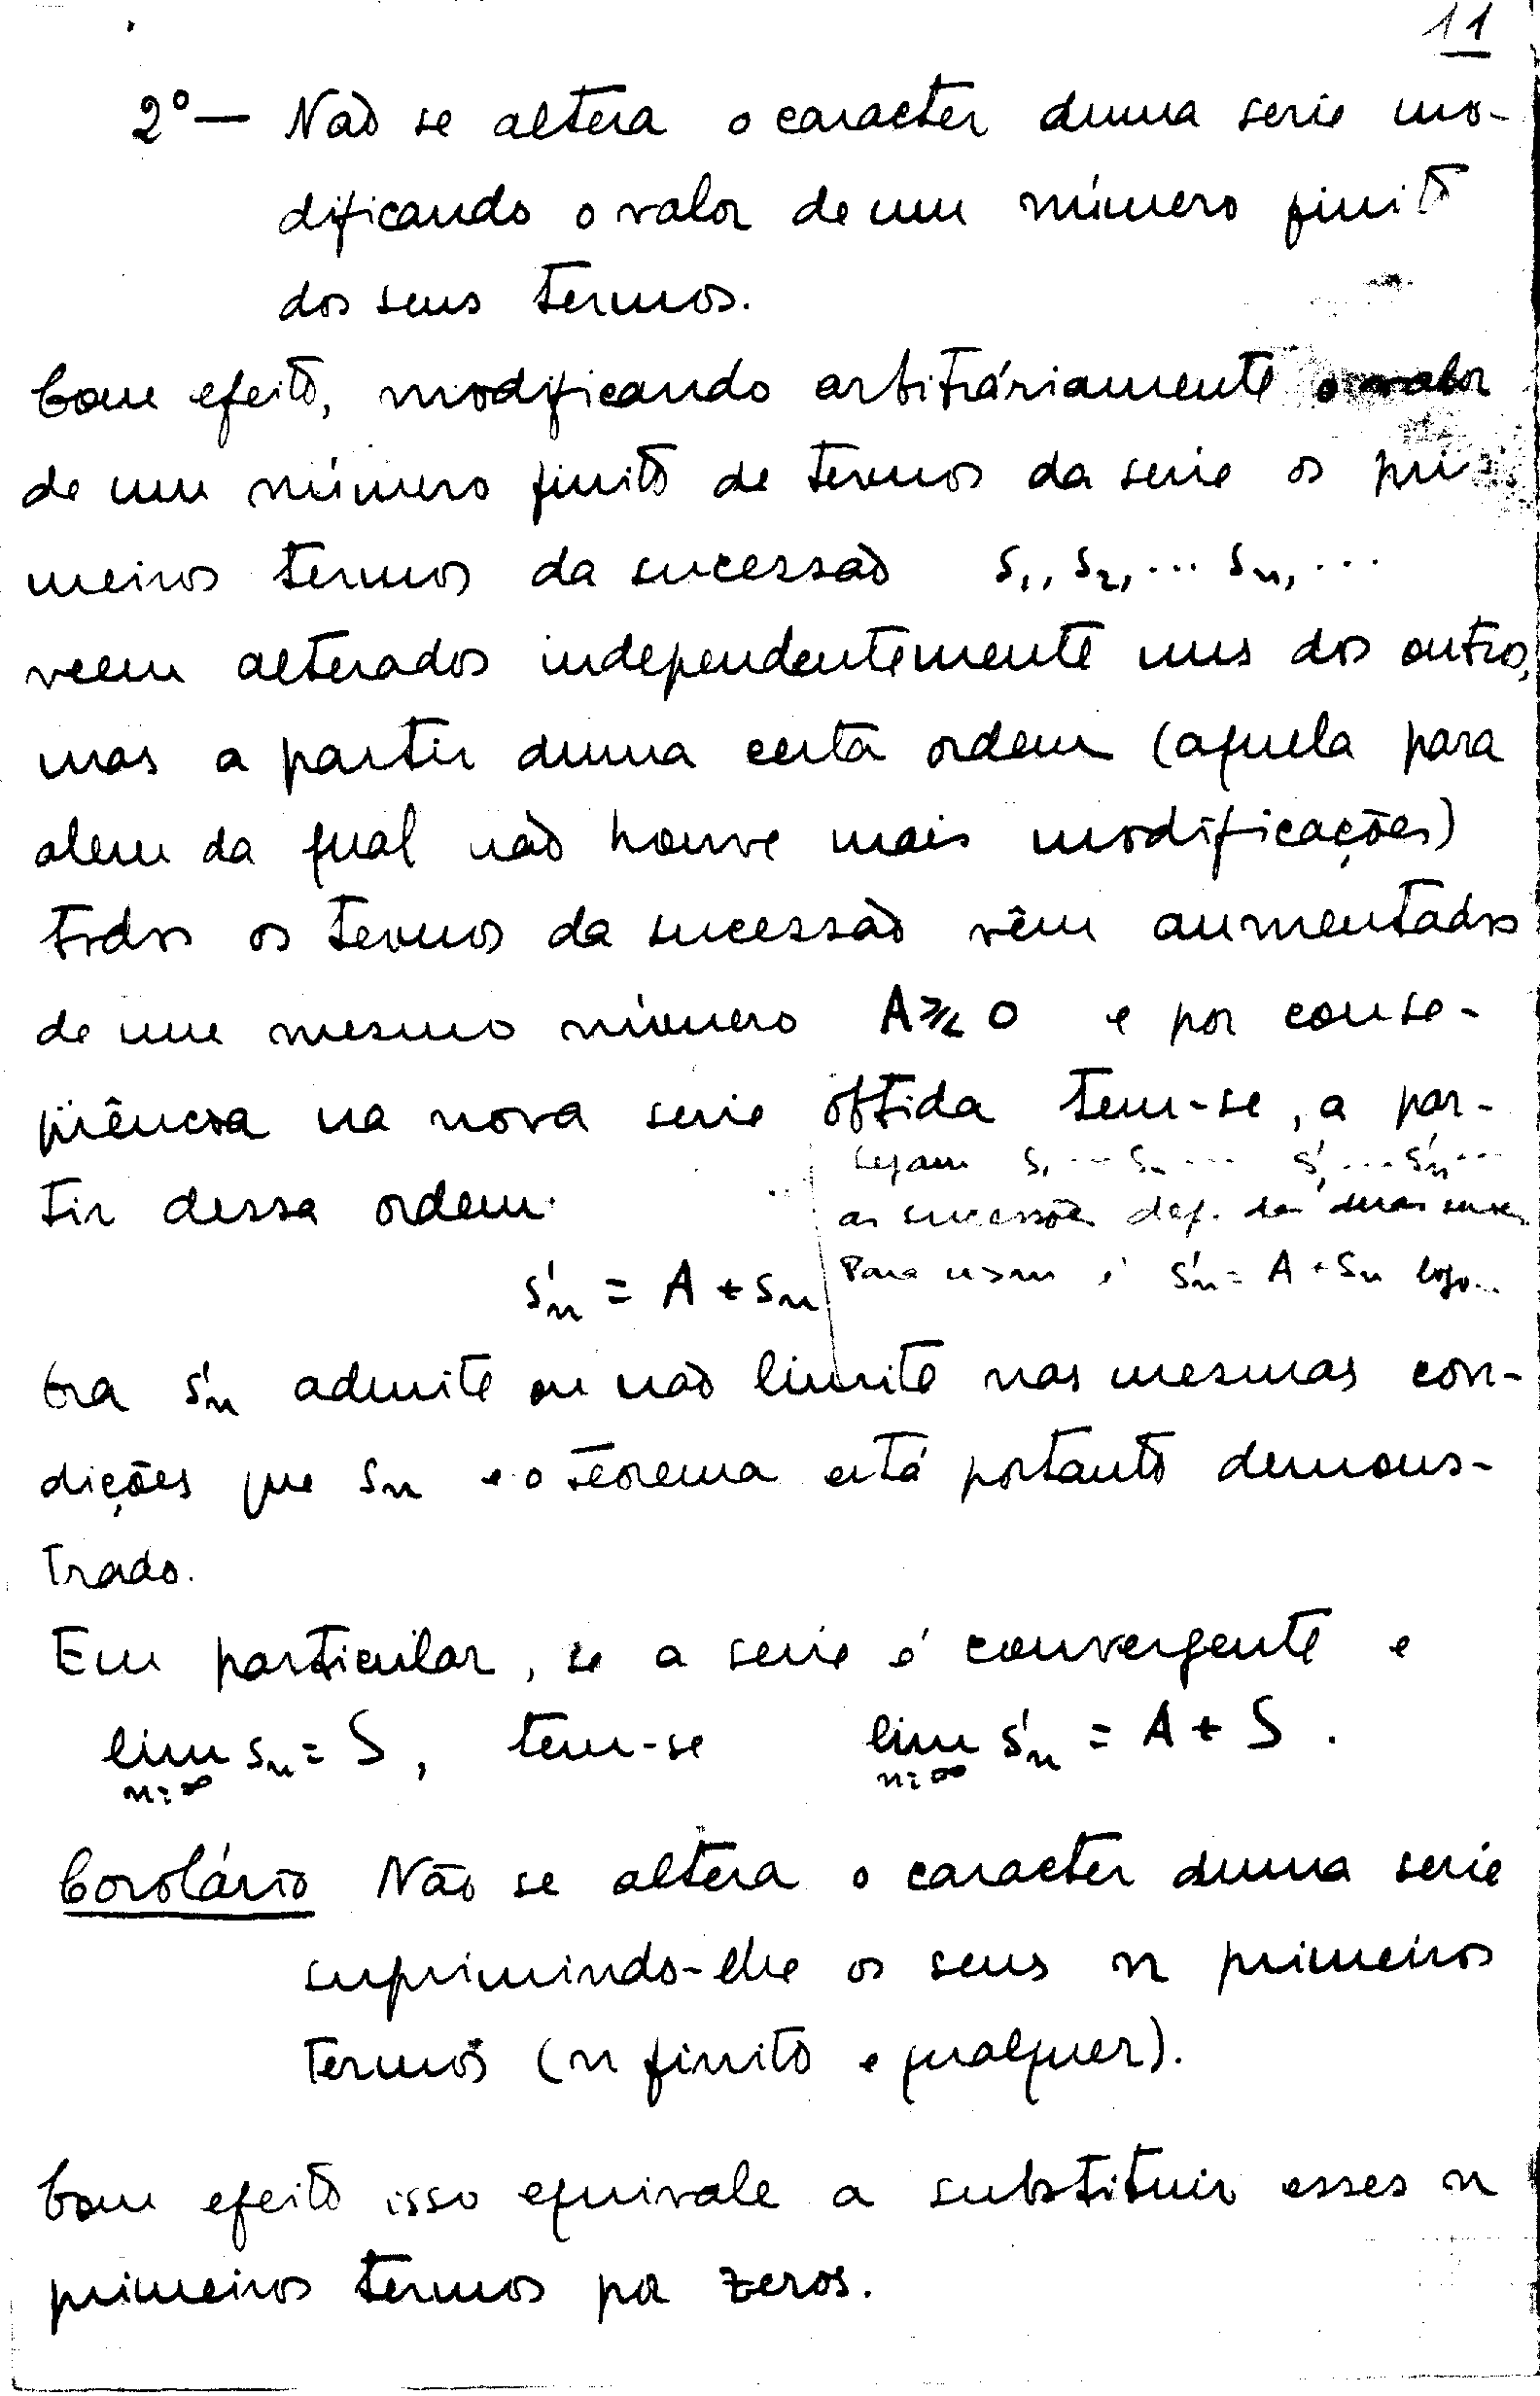 11
2º — Não se altera o caracter duma serie mo-
dificando o valor de um número finito
dos seus termos.
Com efeito, modificando arbitráriamente o valor
de um número finito de termos da serie os pri-
meiros termos da sucessão s₁, s₂, ... sₙ, ...
veem alterados independentemente uns dos outros,
mas a partir duma certa ordem (aquela para
alem da qual não houve mais modificações)
todos os termos da sucessão vêm aumentados
de um mesmo número A ⋛ 0 e por conse-
qüência na nova serie obtida tem-se, a par-
tir dessa ordem
sejam s₁ ... sₙ ... s'₁ ... s'ₙ ...
as sucessões def. das duas series
Para é s'ₙ = A + sₙ logo...
s'ₙ = A + sₙ
Ora s'ₙ admite ou não limite nas mesmas con-
dições que sₙ e o teorema está portanto demons-
trado.
Em particular, se a serie é convergente e
lim sₙ = S, tem-se lim s'ₙ = A + S.
n=∞ n=∞
Corolário Não se altera o caracter duma serie
suprimindo-lhe os seus n primeiros
termos (n finito e qualquer).
Com efeito isso equivale a substituir esses n
primeiros termos por zeros.